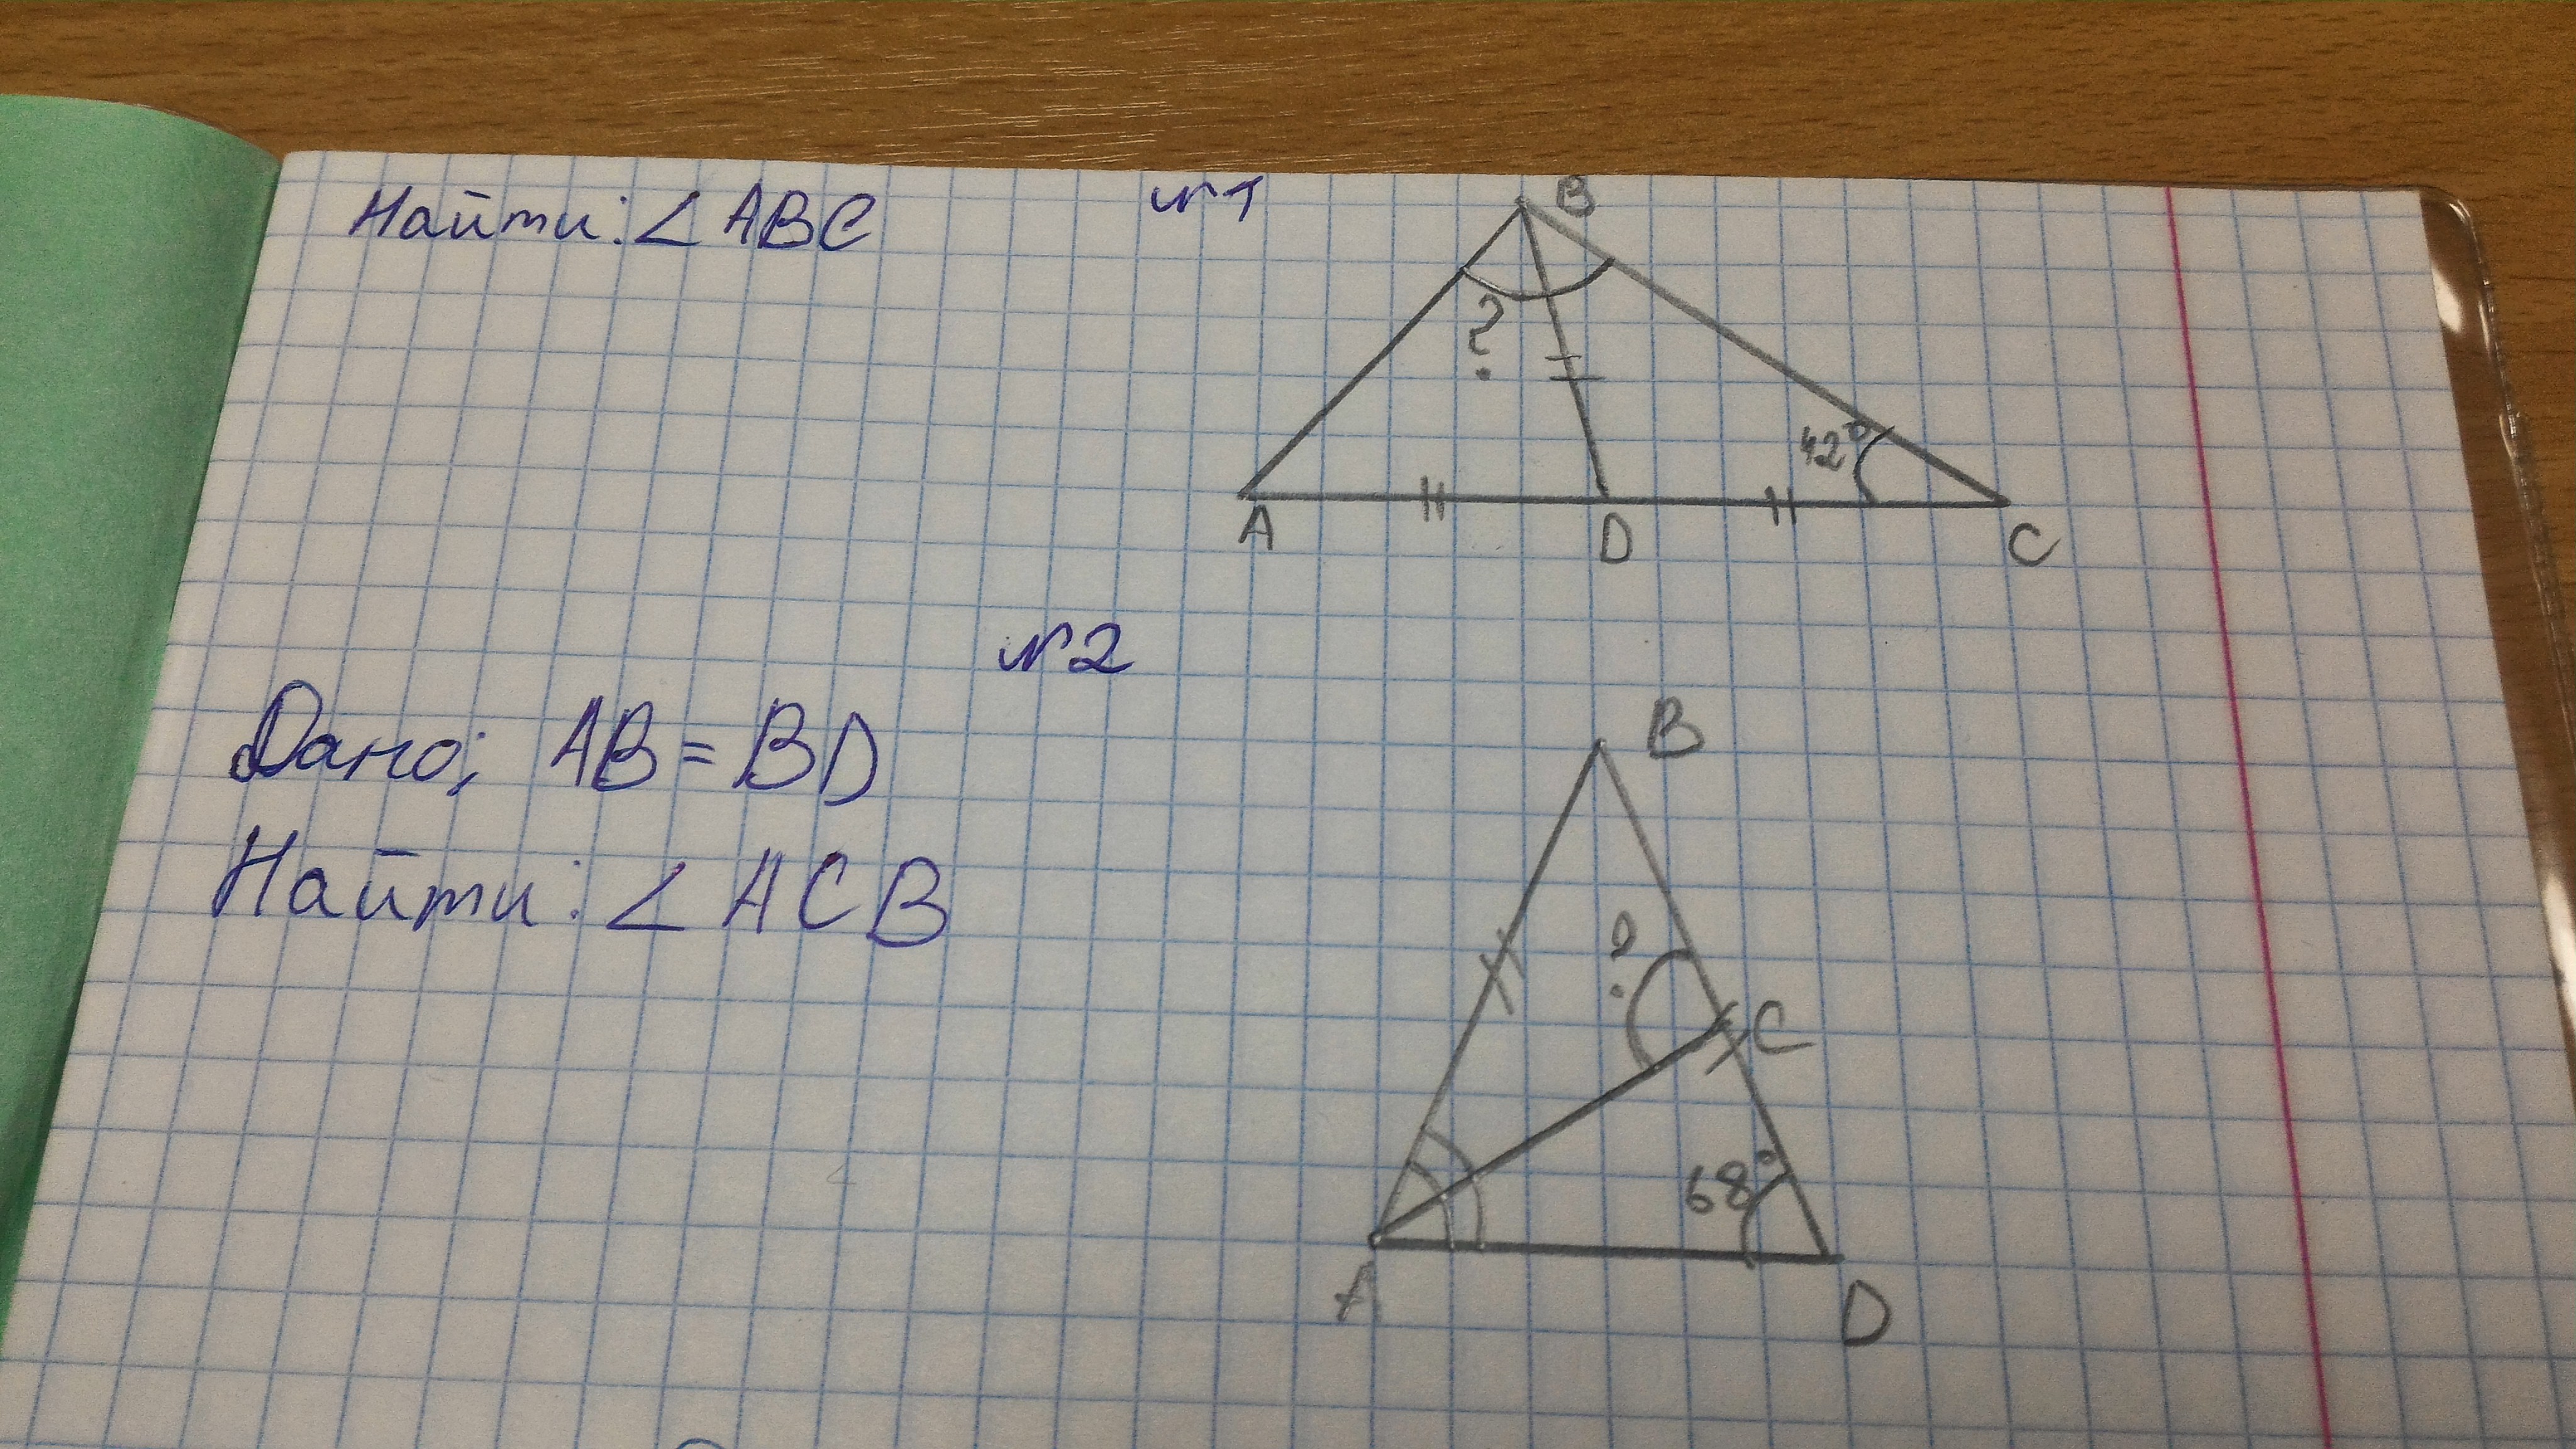 Найти: ∠ ABC
№1
B
?
42°
A
D
C
№2
Дано; AB = BD
Найти: ∠ ACB
B
?
C
68°
A
D